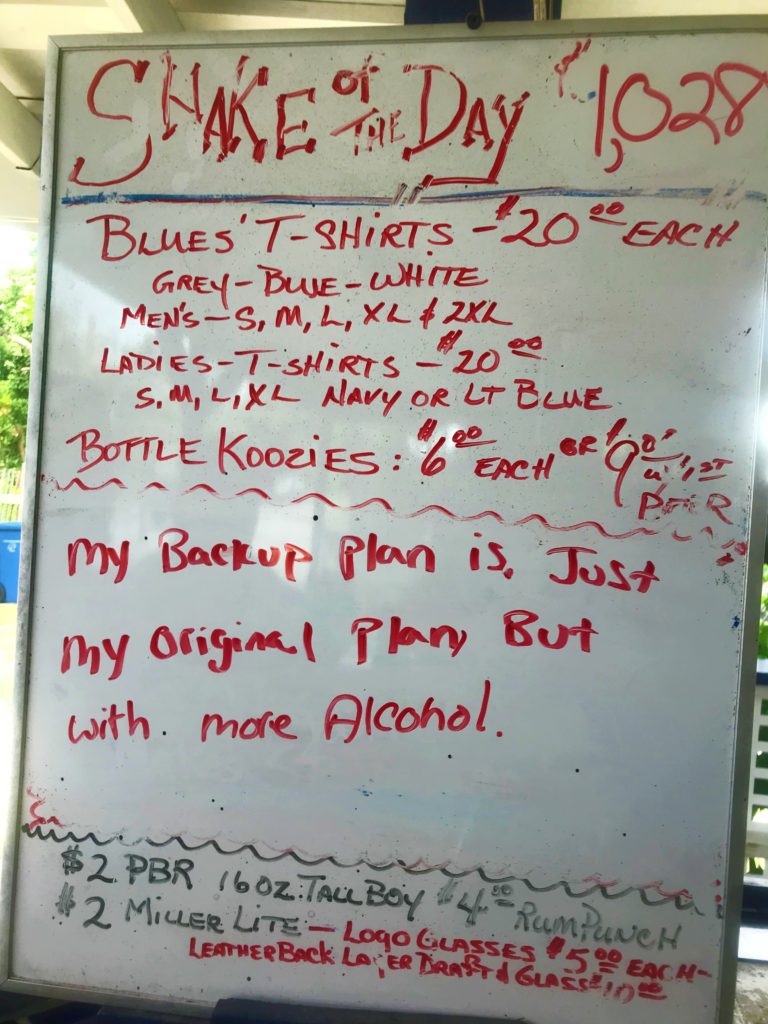 SHAKE OF THE DAY $1,028
BLUES' T-SHIRTS - $20.00 EACH
GREY - BLUE - WHITE
MEN'S - S, M, L, XL & 2XL
LADIES - T-SHIRTS - $20.00
S, M, L, XL NAVY OR LT BLUE
BOTTLE KOOZIES: $6.00 EACH OR $9
My Backup Plan is, Just
my original Plan, But
with. more Alcohol.
$2 PBR 16 OZ. TALL BOY $4.00 RUM PUNCH
$2 MILLER LITE - LOGO GLASSES $5.00 EACH -
LEATHERBACK LAGER DRAFT & GLASS $10.00